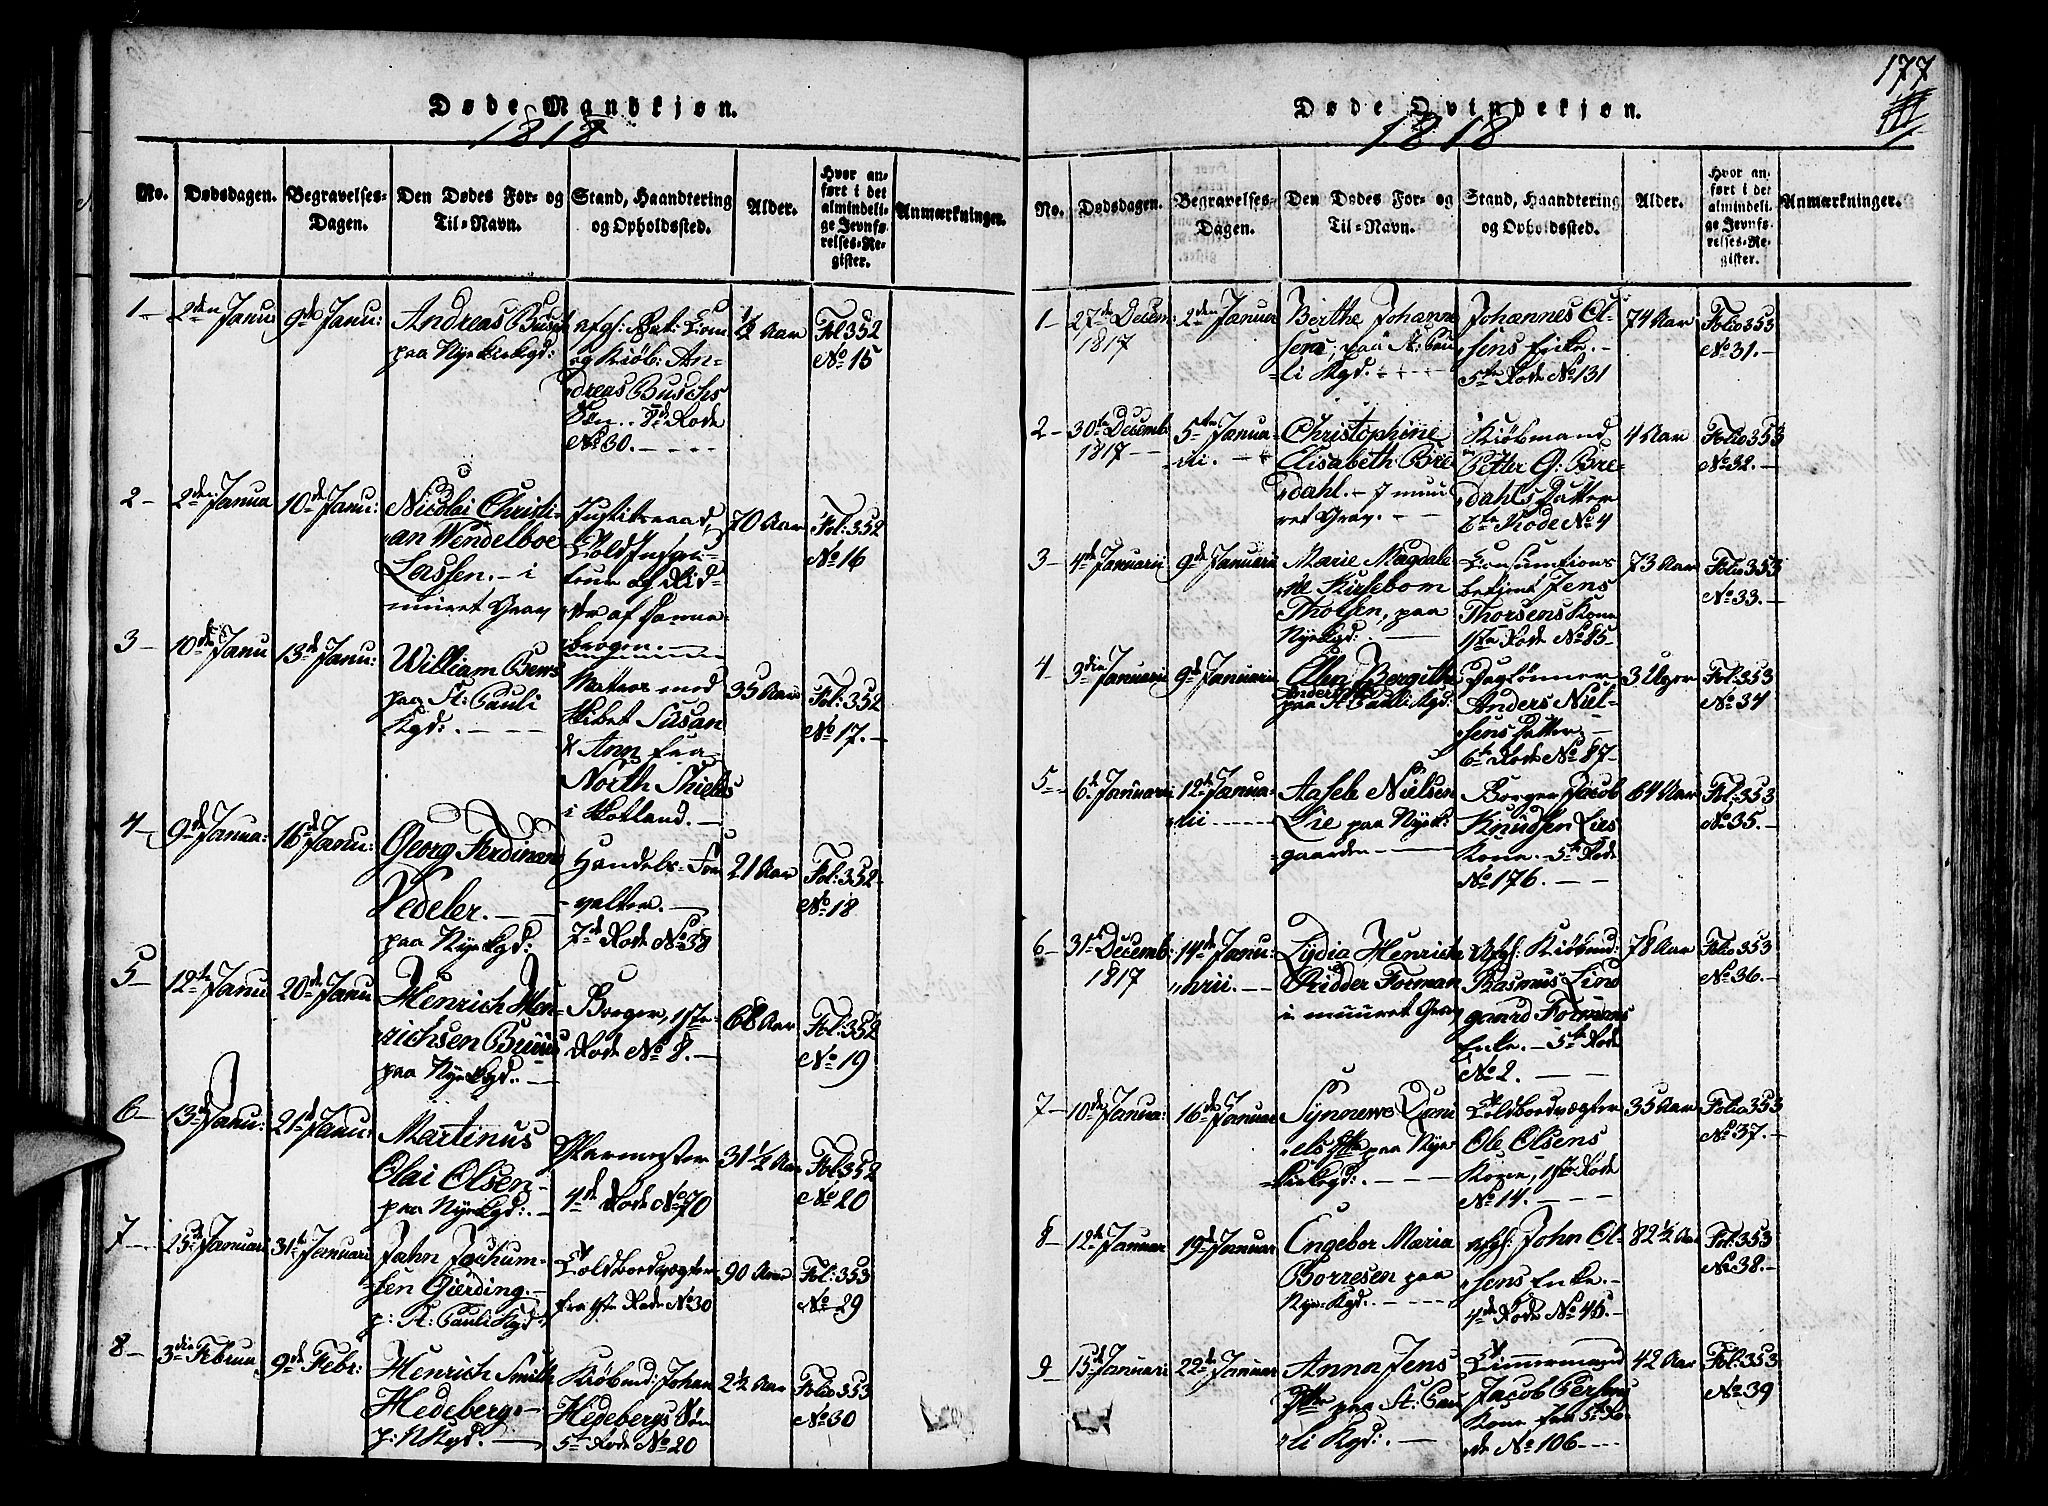 177
Døde Mandkjøn.
1818
No.
Dødsdagen.
Begravelses-
Dagen.
Den Dødes For- og
Til-Navn.
Stand, Haandtering
og Opholdssted.
Alder.
Hvor an-
ført i det
almindeli-
ge Jevnfø-
relses-Re-
gister.
Anmærkninger.
1-
2den Janu:
9de Janu:
Andreas Busch
paa Nye Kirkegd:
afgl:
og Kiøb: An-
dreas Buschs
Søn. 8de Rode
No 30.
½ Aar
Fol 352
No 15
2-
2den Janua
10de Janu:
Nicolai Christi-
an Wendelboe
Lassen. - i
muret Grav
Justitsraad,
Toldinspec-
teur og Rid-
der af Danne-
brogen.
70 Aar
Fol: 352
No 16
3-
10de Janu
13de Janu:
William Bews
paa St: Pauli
Kgd:.
Matros med
Skibet Susan
& Ann fra
North Shields
i Skotland.
35 Aar
Fol: 352
No 17.
4-
9de Janua:
16de Janu:
Georg Ferdinand
Vedeler.
paa Nye Kgd:
Handels-For-
valter.
7de Rode No 38
21 Aar
Fol: 352
No 18
5-
12te Janu
20de Janu
Henrich Hen-
richsen Buuus
paa Nye Kgd:.
Borger, 1ste
Rode No 8.
68 Aar
Fol: 352
No 19
6-
13de Janu:
21de Janu:
Martinus
Olai Olsen
paa Nye Kgd:.
4de Rode No 70
31 ½ Aar
Fol: 352
No 20
7-
25de Januari
31te Januari
Jahn Jochum-
sen Gierding.
p: St: Pauli Kgd
Toldbordvægter
fra 7de Rode No 30
90 Aar
Fol: 353
No 29
8-
3die Februa
9de Febr:
Henrich Smith
Hedeberg
p: N Kgd.
Kiøbmd: Johan
Hedebergs Søn
5te Rode No 20
2½ Aar
Folio 353
No 30
Døde Qvindekjøn.
1818
No.
Dødsdagen.
Begravelses-
Dagen.
Den Dødes For- og
Til-Navn.
Stand, Haandtering
og Opholdssted.
Alder.
Hvor an-
ført i det
almindeli-
ge Jevnfø-
relses-Re-
gister.
Anmærkninger.
1-
27de Decem:
1817
2den Januar
Berthe Johanne
paa St: Pau-
li Kgd.
Johannes Ol-
sens Enke.
5te Rode No 131
74 Aar
Folio 353
No 31.
2-
30te Decemb:
1817
5te Janua-
rii.
Christophine
Elisabeth Bre-
dahl. - I muu-
ret Grav.
Kiøbmand
Petter G: Bre-
dahls Datter
6te Rode No 4
4 Aar
Folio 353
No 32.
3-
4de Januarii
9de Januarii
Marie Magdale-
ne Kirsebom
Tholsen, paa
Nye Kgd:
Consumtions
betjent Jens
Thorsens Kone
1ste Rode No 85
73 Aar
Folio 353
No 33.
4-
3die Januarii
9de Januarii
Ellen Bergithe
Anders Dtr
paa St: Pauli Kgd:
Daglønner
Anders Niel-
sens Datter
6te Rode No 87
3 Uger
Fol: 353
No 34
5-
6te Januarii
12te Janua-
rii
Aaseb Nielsen
Lie paa Nye K:
gaarden
Borger Jacob
Knudsen Lies
Kone. 5te Rode
No 176.
64 Aar
Fol: 353
No 35.
6-
31te Decemb:
1817
14de Janu:
arii.
Lydia Henriche
Ridder Forman
i muuret Grav
Afgl: Kiøbmd:
Rasmus Lind-
gaard Formans
Enke. - 5te Rode
No 2.
78 Aar
Folio 353
No 36.
7-
10de Janua:
16de Januar
Synnewe Dani-
els Dtr paa Nye
Kirkegd:.
Toldbordvægter
Ole Olsens
Kone, 1ste Rode
No 14.
35 Aar
Folio 353
No 37.
8-
12te Januar
19de Januar
Engebor Maria
Borresen paa
Nye Kgd.
afgl: John Ol-
sens Enke.
4de Rode No 45.
82½ Aar
Fol: 353
No 38.
9-
15de Januari
22de Januar
Anna Jens
Dtr paa St: Pau-
li Kgd:.
Timmermand
Jacob Persens
Kone fra 5te Ro-
de No 106
42 Aar
Fol: 353
No 39